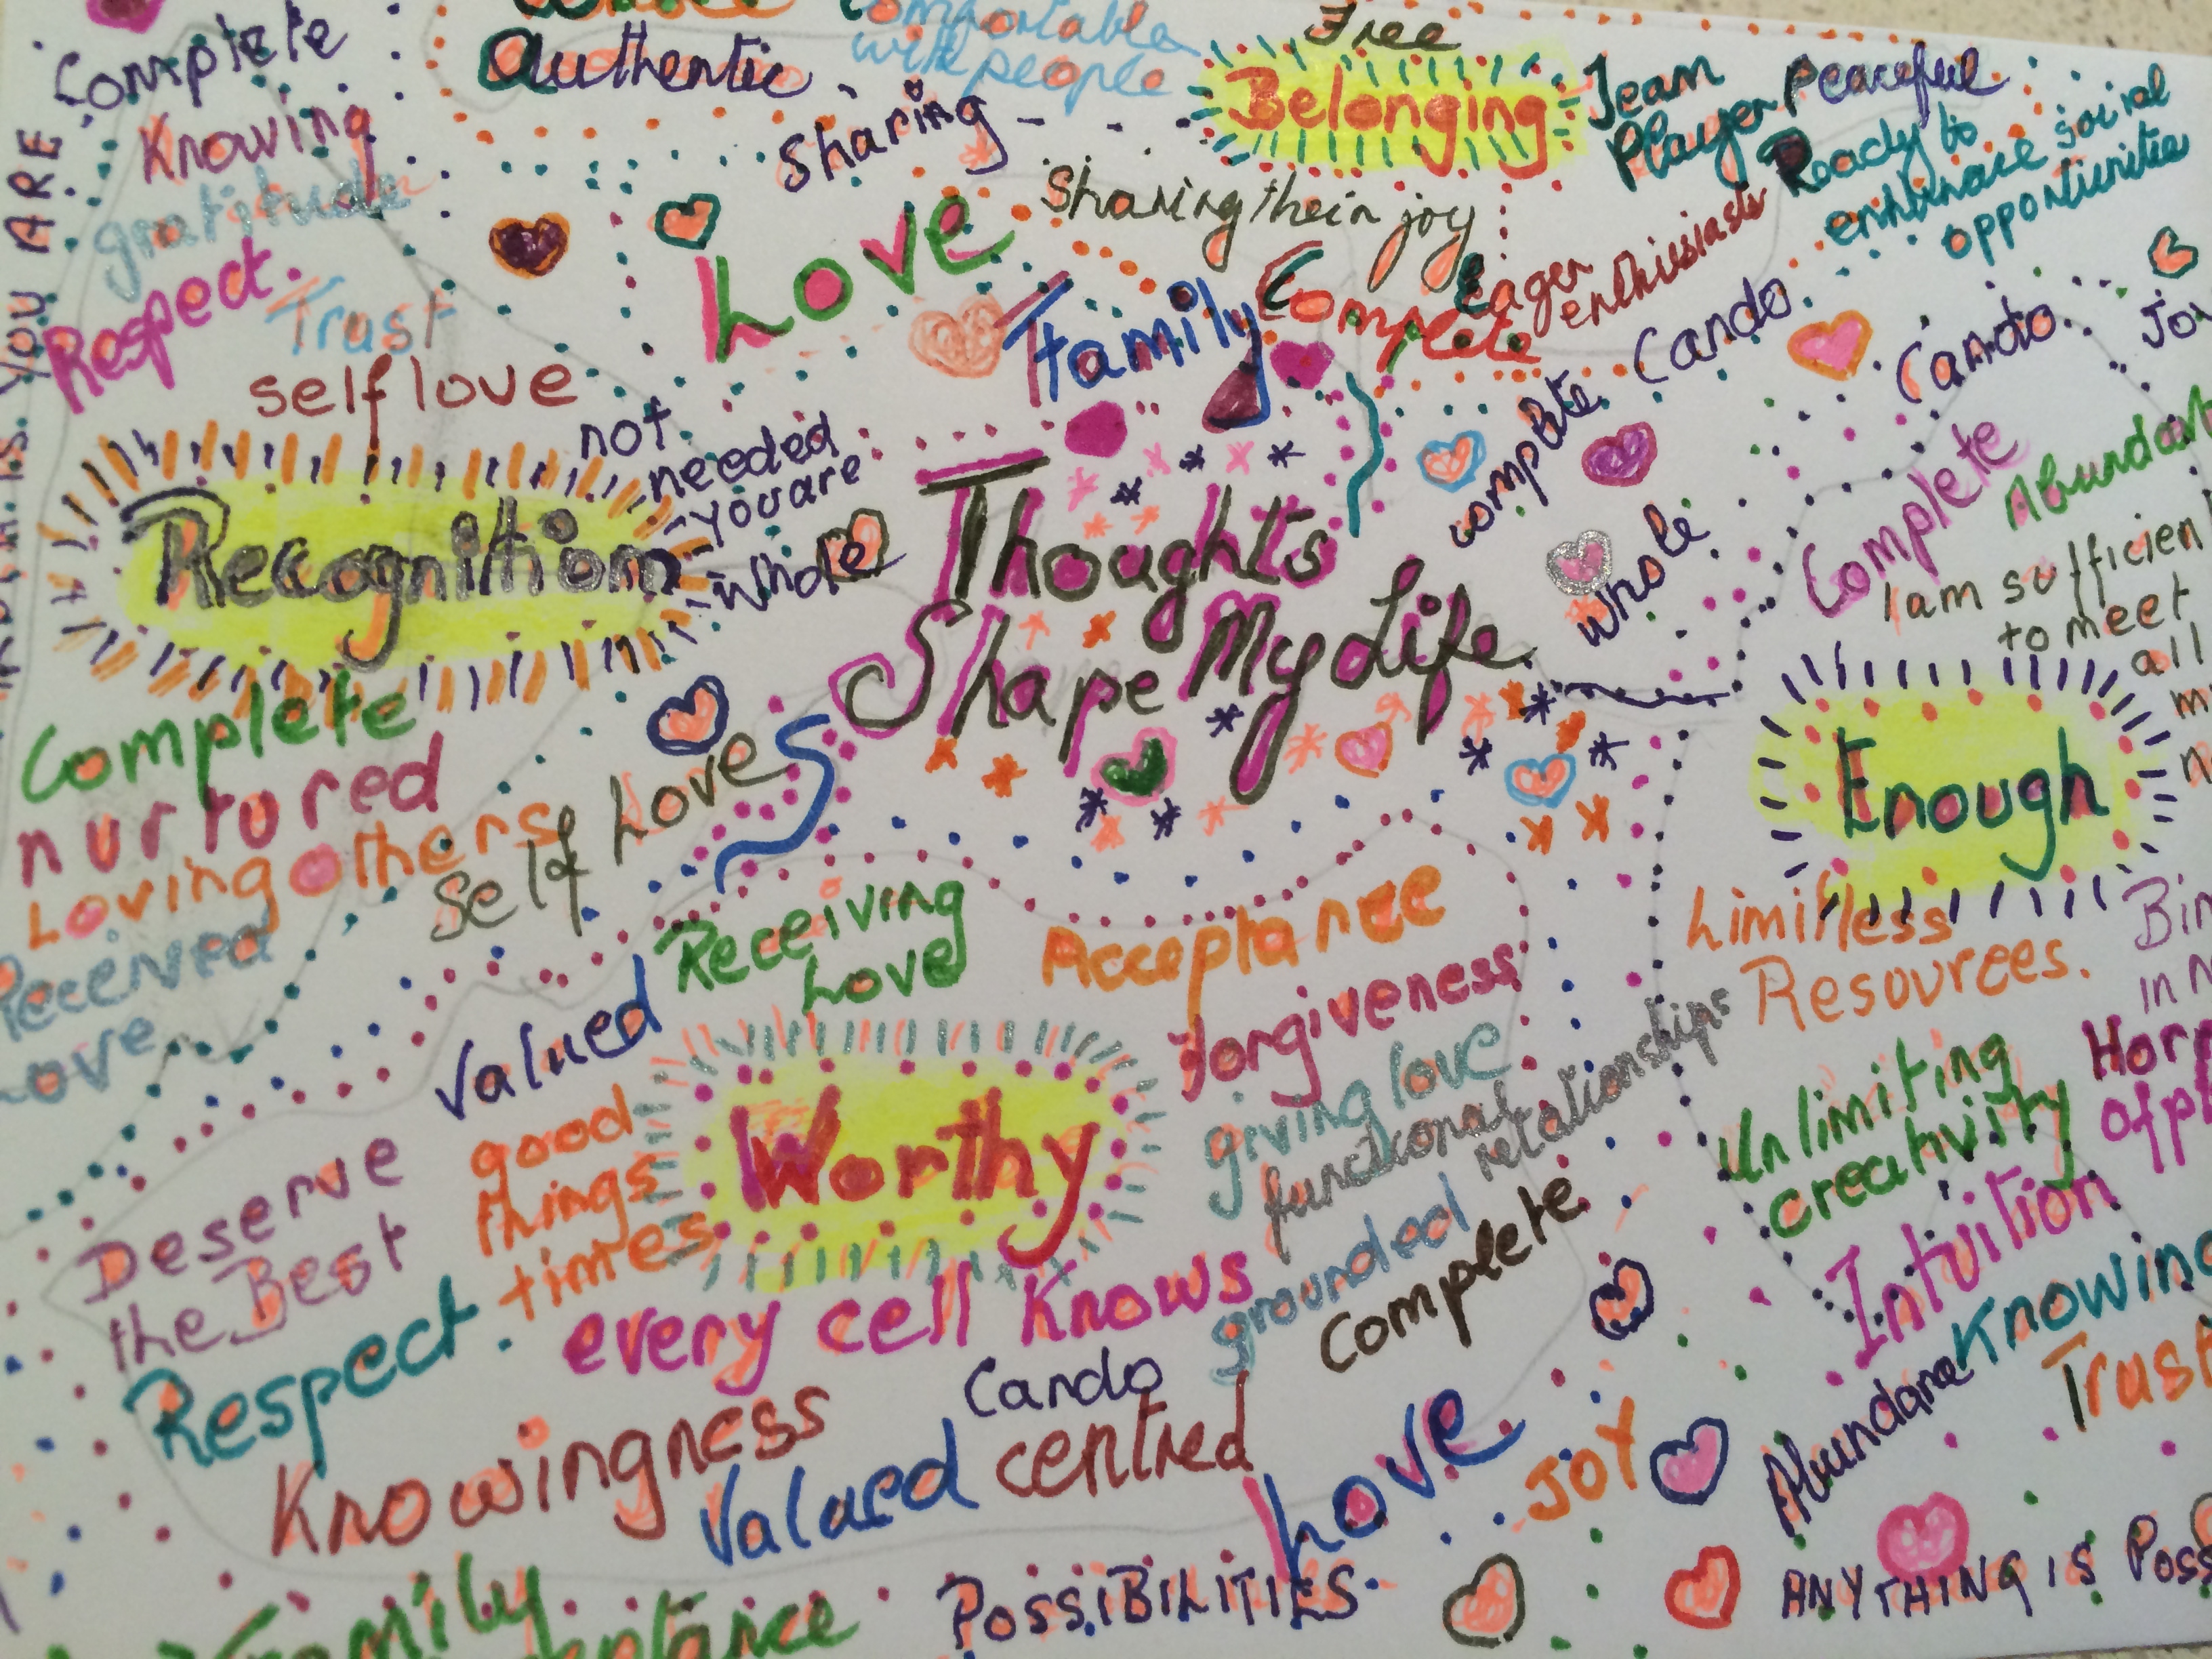 Complete
Knowing
gratitude
Respect.
Trust
self love
YOU ARE
Authentic
Comfortable
with people
Sharing
Free
Belonging
Team
Player
Peaceful
Ready to
embrace social
opportunities
Sharing their joy
Love
Family
Complete
Eager
enthusiastic
Cando
Cando
complete
whole
Complete
I am sufficien
to meet
all
not
needed
you are
whole
Recognition
Thoughts
Shape My Life
Enough
Complete
nurtured
Loving others
Self Love
Received
Love
Receiving
Love
Acceptance
forgiveness
giving love
functional
relationships
grounded
Complete
Limitless
Resources.
Unlimiting
creativity
Intuition
Knowing
Trust
Abundance
Valued
good
things
times
Worthy
Deserve
the Best
Respect.
every cell Knows
Cando
Knowingness
Valued
centred
Love
JOY
Family
POSSIBILITIES.
ANYTHING IS POSS